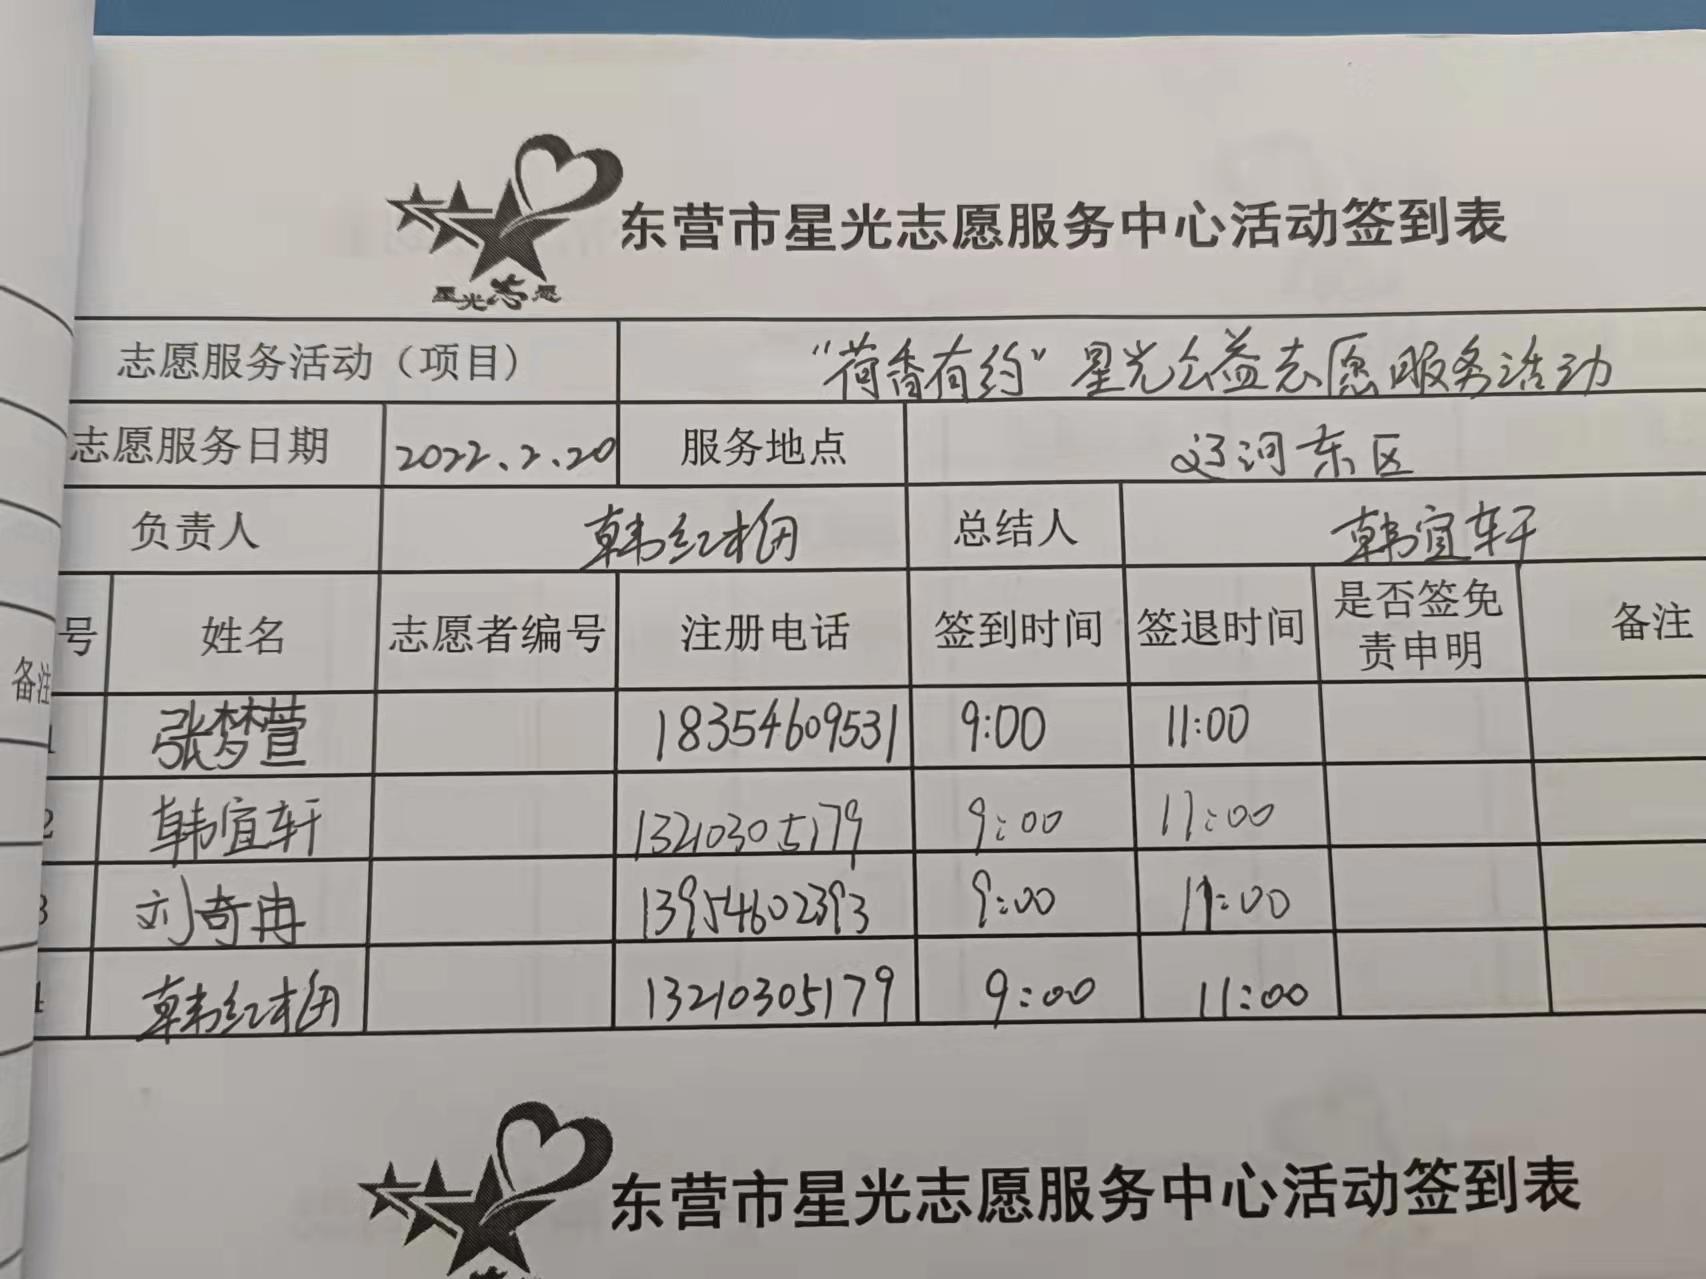 星光志愿
东营市星光志愿服务中心活动签到表
志愿服务活动（项目） “荷香有约”星光公益志愿服务活动
志愿服务日期 2022.2.20 服务地点 辽河东区
负责人 韩红梅 总结人 韩宜轩
号 姓名 志愿者编号 注册电话 签到时间 签退时间 是否签免责申明 备注
备注
1 张梦萱 18354609531 9:00 11:00
2 韩宜轩 13210305179 9:00 11:00
3 刘奇冉 13954602393 9:00 11:00
4 韩红梅 13210305179 9:00 11:00
东营市星光志愿服务中心活动签到表